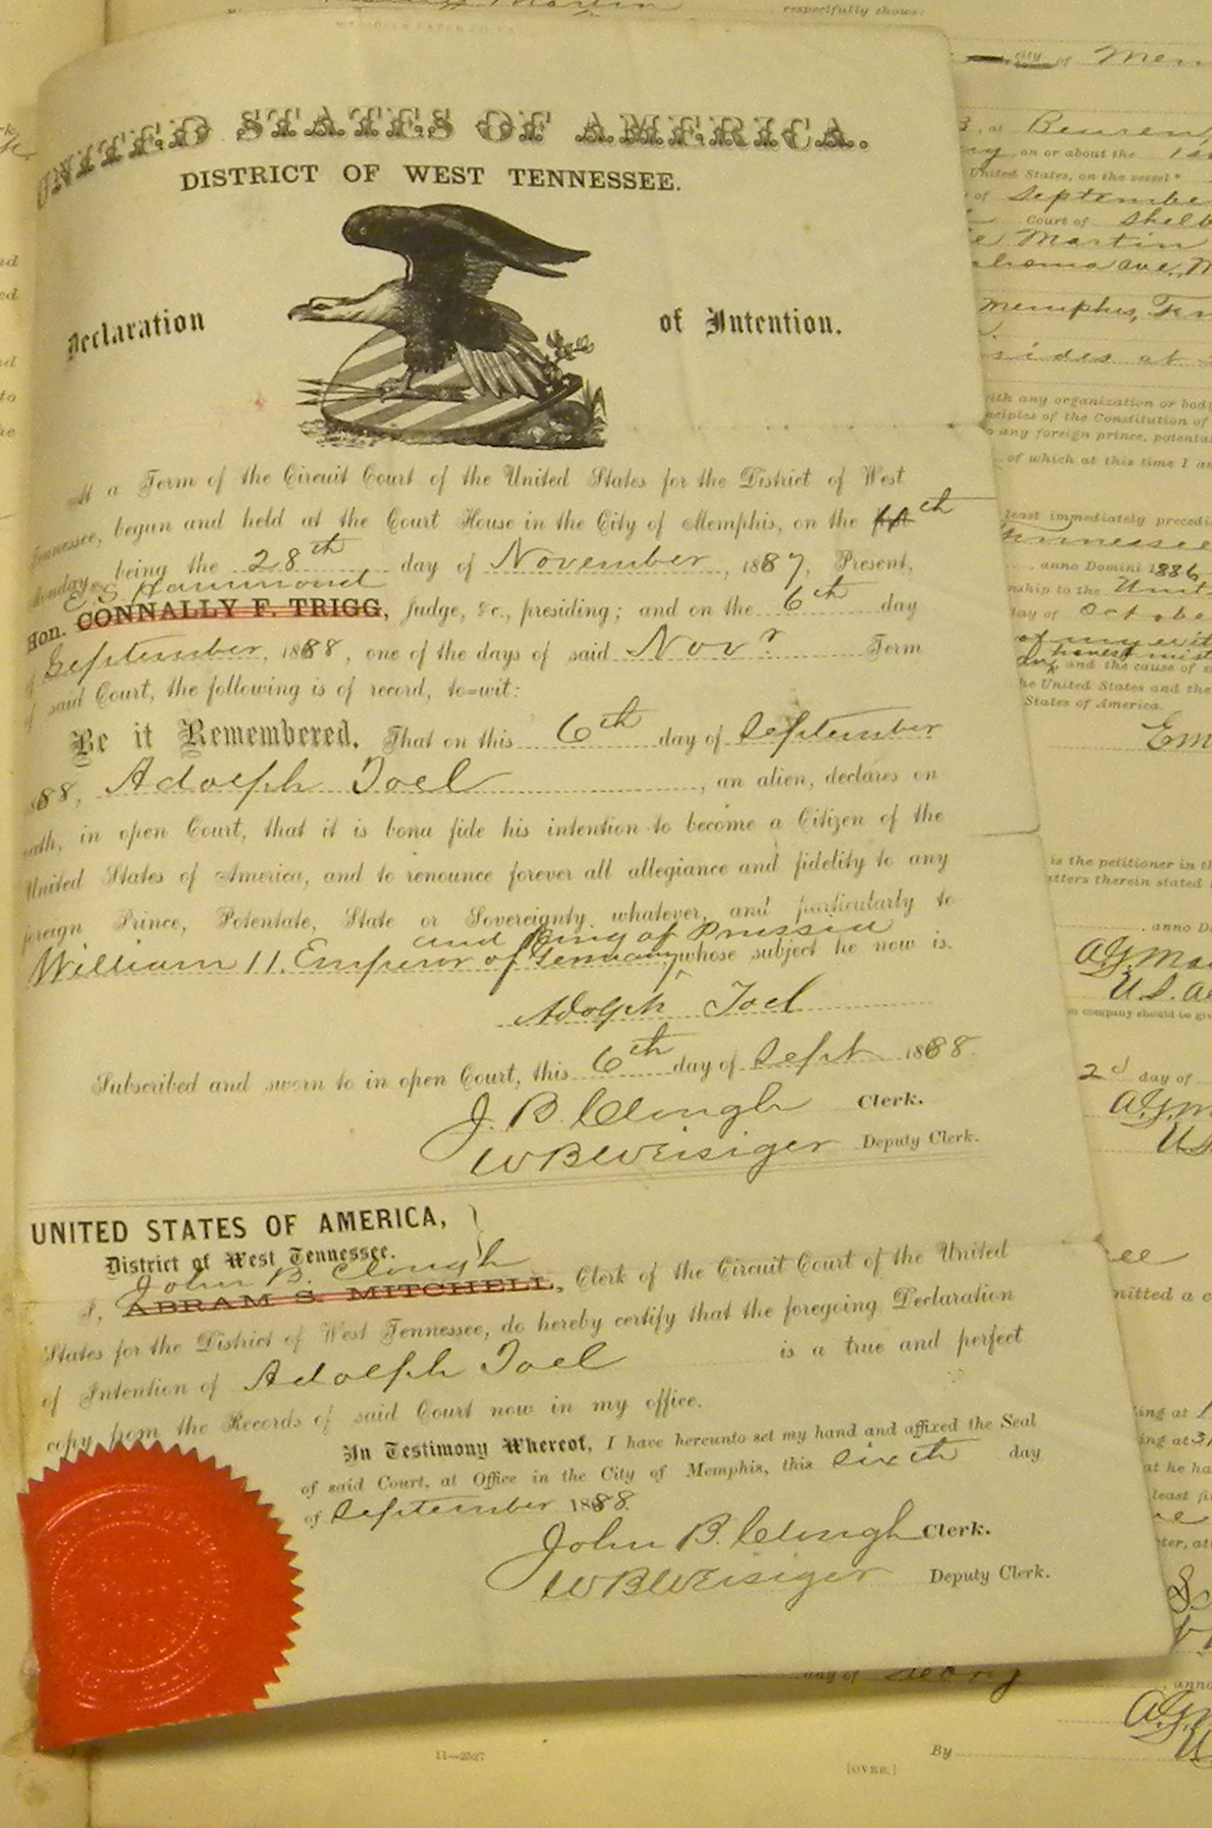 respectfully shows:
UNITED STATES OF AMERICA.
DISTRICT OF WEST TENNESSEE.
Declaration of Intention.
At a Term of the Circuit Court of the United States for the District of West
Tennessee, begun and held at the Court House in the City of Memphis, on the 4th
Monday, being the 28th day of November, 1887, Present,
E S Hammond
Hon. CONNALLY F. TRIGG, Judge, &c., presiding; and on the 6th day
of September, 1888, one of the days of said Novr Term
of said Court, the following is of record, to=wit:
Be it Remembered, That on this 6th day of September
1888, Adolph Joel, an alien, declares on
oath, in open Court, that it is bona fide his intention to become a Citizen of the
United States of America, and to renounce forever all allegiance and fidelity to any
foreign Prince, Potentate, State or Sovereignty whatever, and particularly to
and King of Prussia
William 11. Emperor of Germany whose subject he now is.
Adolph Joel
Subscribed and sworn to in open Court, this 6th day of Sept 1888.
J. B. Clough Clerk.
W B Weisiger Deputy Clerk.
UNITED STATES OF AMERICA,
District of West Tennessee.
John B. Clough
I, ABRAM S. MITCHELL, Clerk of the Circuit Court of the United
States for the District of West Tennessee, do hereby certify that the foregoing Declaration
of Intention of Adolph Joel is a true and perfect
copy from the Records of said Court now in my office.
In Testimony Whereof, I have hereunto set my hand and affixed the Seal
of said Court, at Office in the City of Memphis, this sixth day
of September 1888.
John B. Clough Clerk.
W B Weisiger Deputy Clerk.
city of Mem
3, at Beuren,
on or about the
United States, on the vessel*
of September
Court of Shelb
Martin
ave.,
Memphis,
sides at
with any organization or body
of the Constitution of
any foreign prince,
of which at this time I a
least immediately
Tennessee
anno Domini 1886
to the Unit
day of Octobe
and the cause of
the United States and the
States of America.
Em
is the petitioner in th
matters therein stated
anno D
company should be
2d day of
day of
anno
By
11—2527
[OVER.]